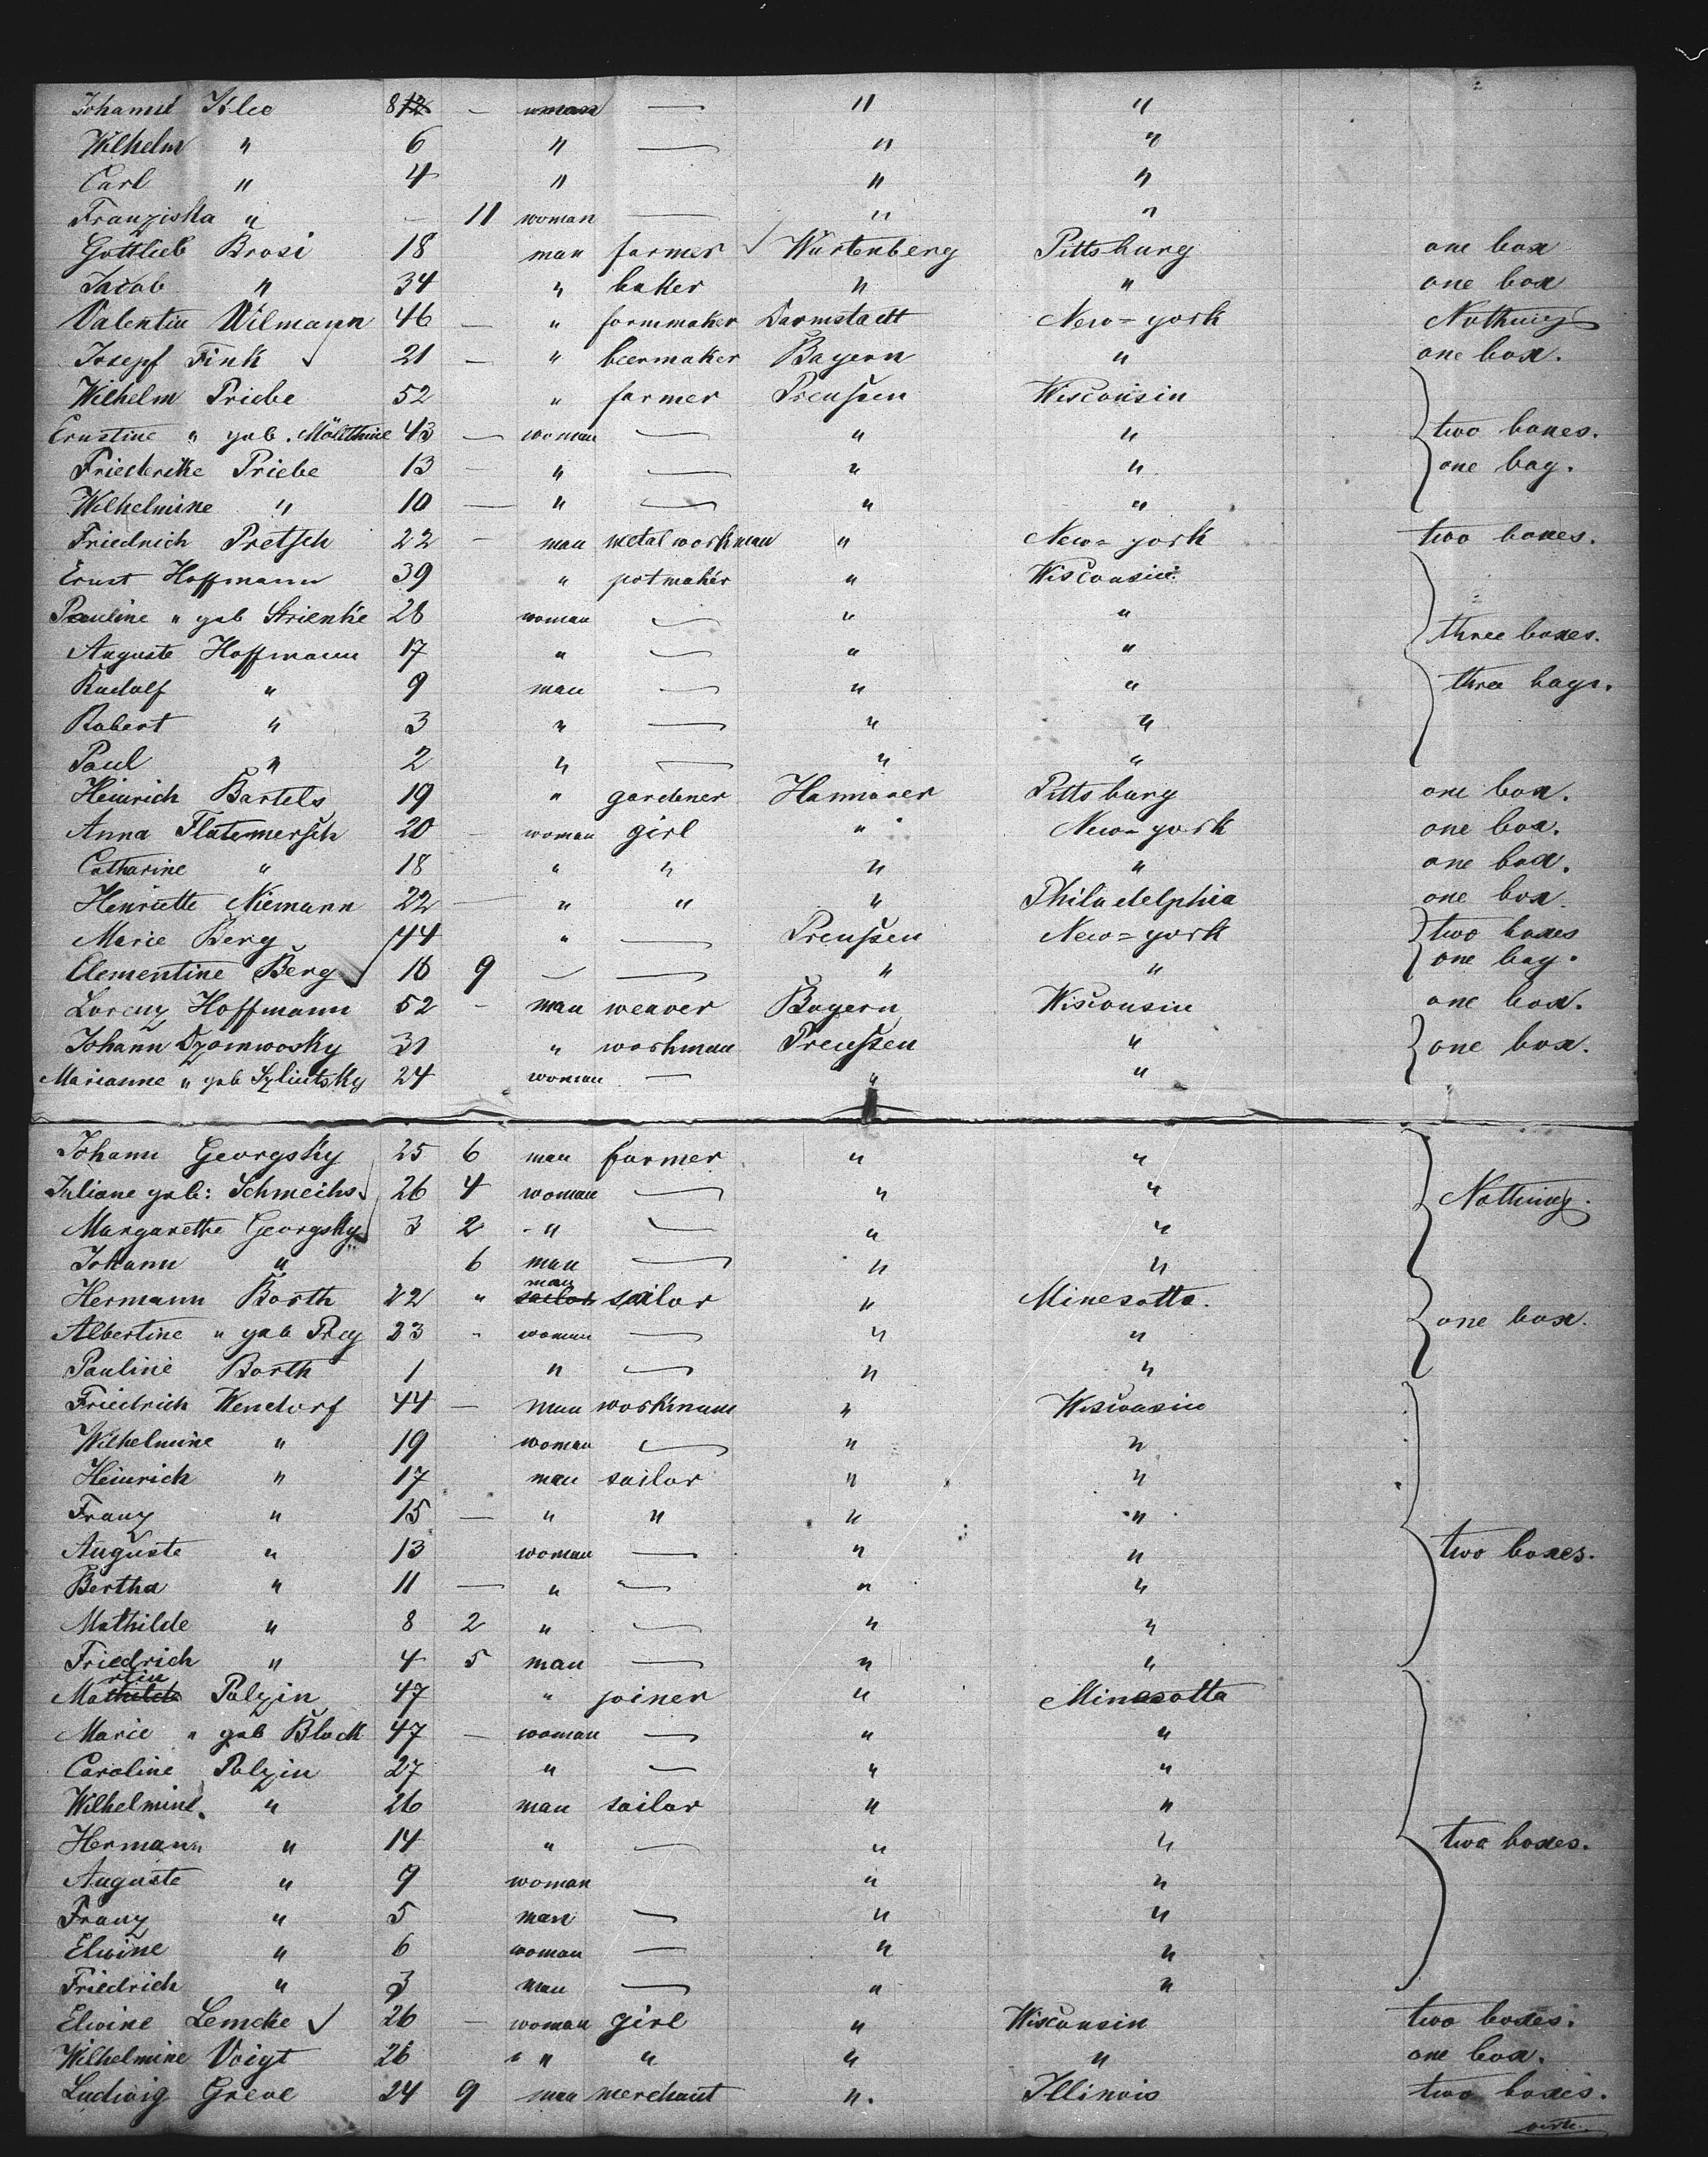 Johann Klee 8 – " "
Wilhelm " 6 " — " "
Carl " 4 " " "
Franziska " – 11 woman — " "
Gottlieb Brosi 18 man farmer √ Würtenberg Pittsburg one box
Jacob " 34 " baker " " one box
Valentin Wilmann 46 — " formmaker Darmstadt New=york Nothing
Josepf Fink √ 21 – " beermaker Bayern " one box.
Wilhelm Priebe 52 " farmer Preußen Wisconsin
Ernstine " geb. 43 — woman — " " two boxes.
Friederike Priebe 13 – " — " " one bag.
Wilhelmine " 10 — " — " "
Friedrich Pretsch 22 – man metal workman " New=york two boxes.
Ernst Hoffmann 39 " potmaker " Wisconsin
Pauline " geb Strienke 28 woman — " "
Auguste Hoffmann 17 " — " " three boxes.
Rudolf " 9 man — " " three bags.
Robert " 3 " — " "
Paul " 2 " — " "
Heinrich Bartels 19 " gardener Hannover Pittsburg one box.
Anna Flatemersch 20 – woman girl " New=york one box.
Catharine " 18 " " " " one box.
Henriette Niemann 22 — " " " Philadelphia one box.
Marie Berg 44 " — Preußen New=york two boxes
Clementine Berg √ 18 9 — — " " one bag.
Lorenz Hoffmann 52 – man weaver Bayern Wisconsin one box.
Johann Dzomwosky 31 " workman Preußen " one box.
Marianne " geb Szlintsky 24 woman — " "
Johann Georgsky 25 6 man farmer " "
Juliane geb: Schmeichs 26 4 woman — " " Nothing.
Margarethe Georgsky 3 2 " — " "
Johann " 6 man — " "
Hermann Borth 22 " man sailor sailor " Minesotta.
Albertine " geb Prey 23 " woman — " " one box.
Pauline Borth 1 " — " "
Friedrich Wendorf 44 — man workmam " Wisconsin
Wilhelmine " 19 woman — " "
Heinrich " 17 man sailor " "
Franz " 15 — " " " "
Auguste " 13 woman — " " two boxes.
Bertha " 11 — " — " "
Mathilde " 8 2 " — " "
Friedrich " 4 5 man — " "
Mathilde rtin Polzin 47 " joiner " Minesotta
Marie " geb Block 47 – woman — " "
Caroline Polzin 27 " — " "
Wilhelmine " 26 man sailor " "
Hermann " 14 " — " " two boxes.
Auguste " 9 woman " "
Franz " 5 man — " "
Elwine " 6 woman — " "
Friedrich " 3 man — " "
Elwine Lemcke √ 26 – woman girl " Wisconsin two boxes.
Wilhelmine Voigt 26 " " " " one box.
Ludwig Greve 24 9 man merchant " . Illinois two boxes.